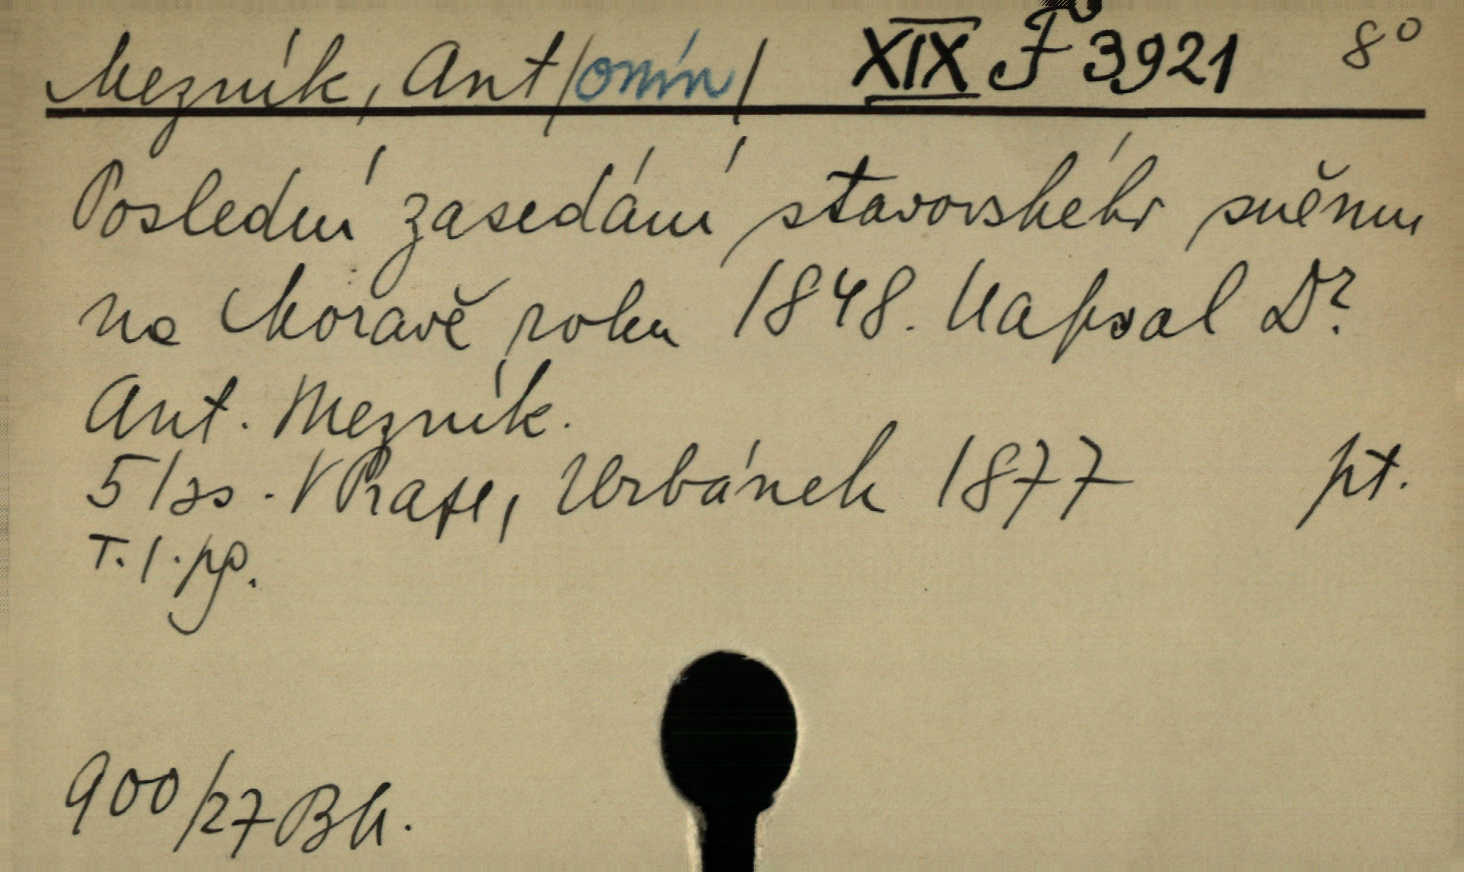 Mezník, Ant/onín/ XIX F 3921 8°
Poslední zasedání stavovského sněmu
na Moravě roku 1848. Napsal Dr.
Ant. Mezník.
51 ss. V Praze, Urbánek 1877 pt.
T. 1. pg.
900/27 Bh.